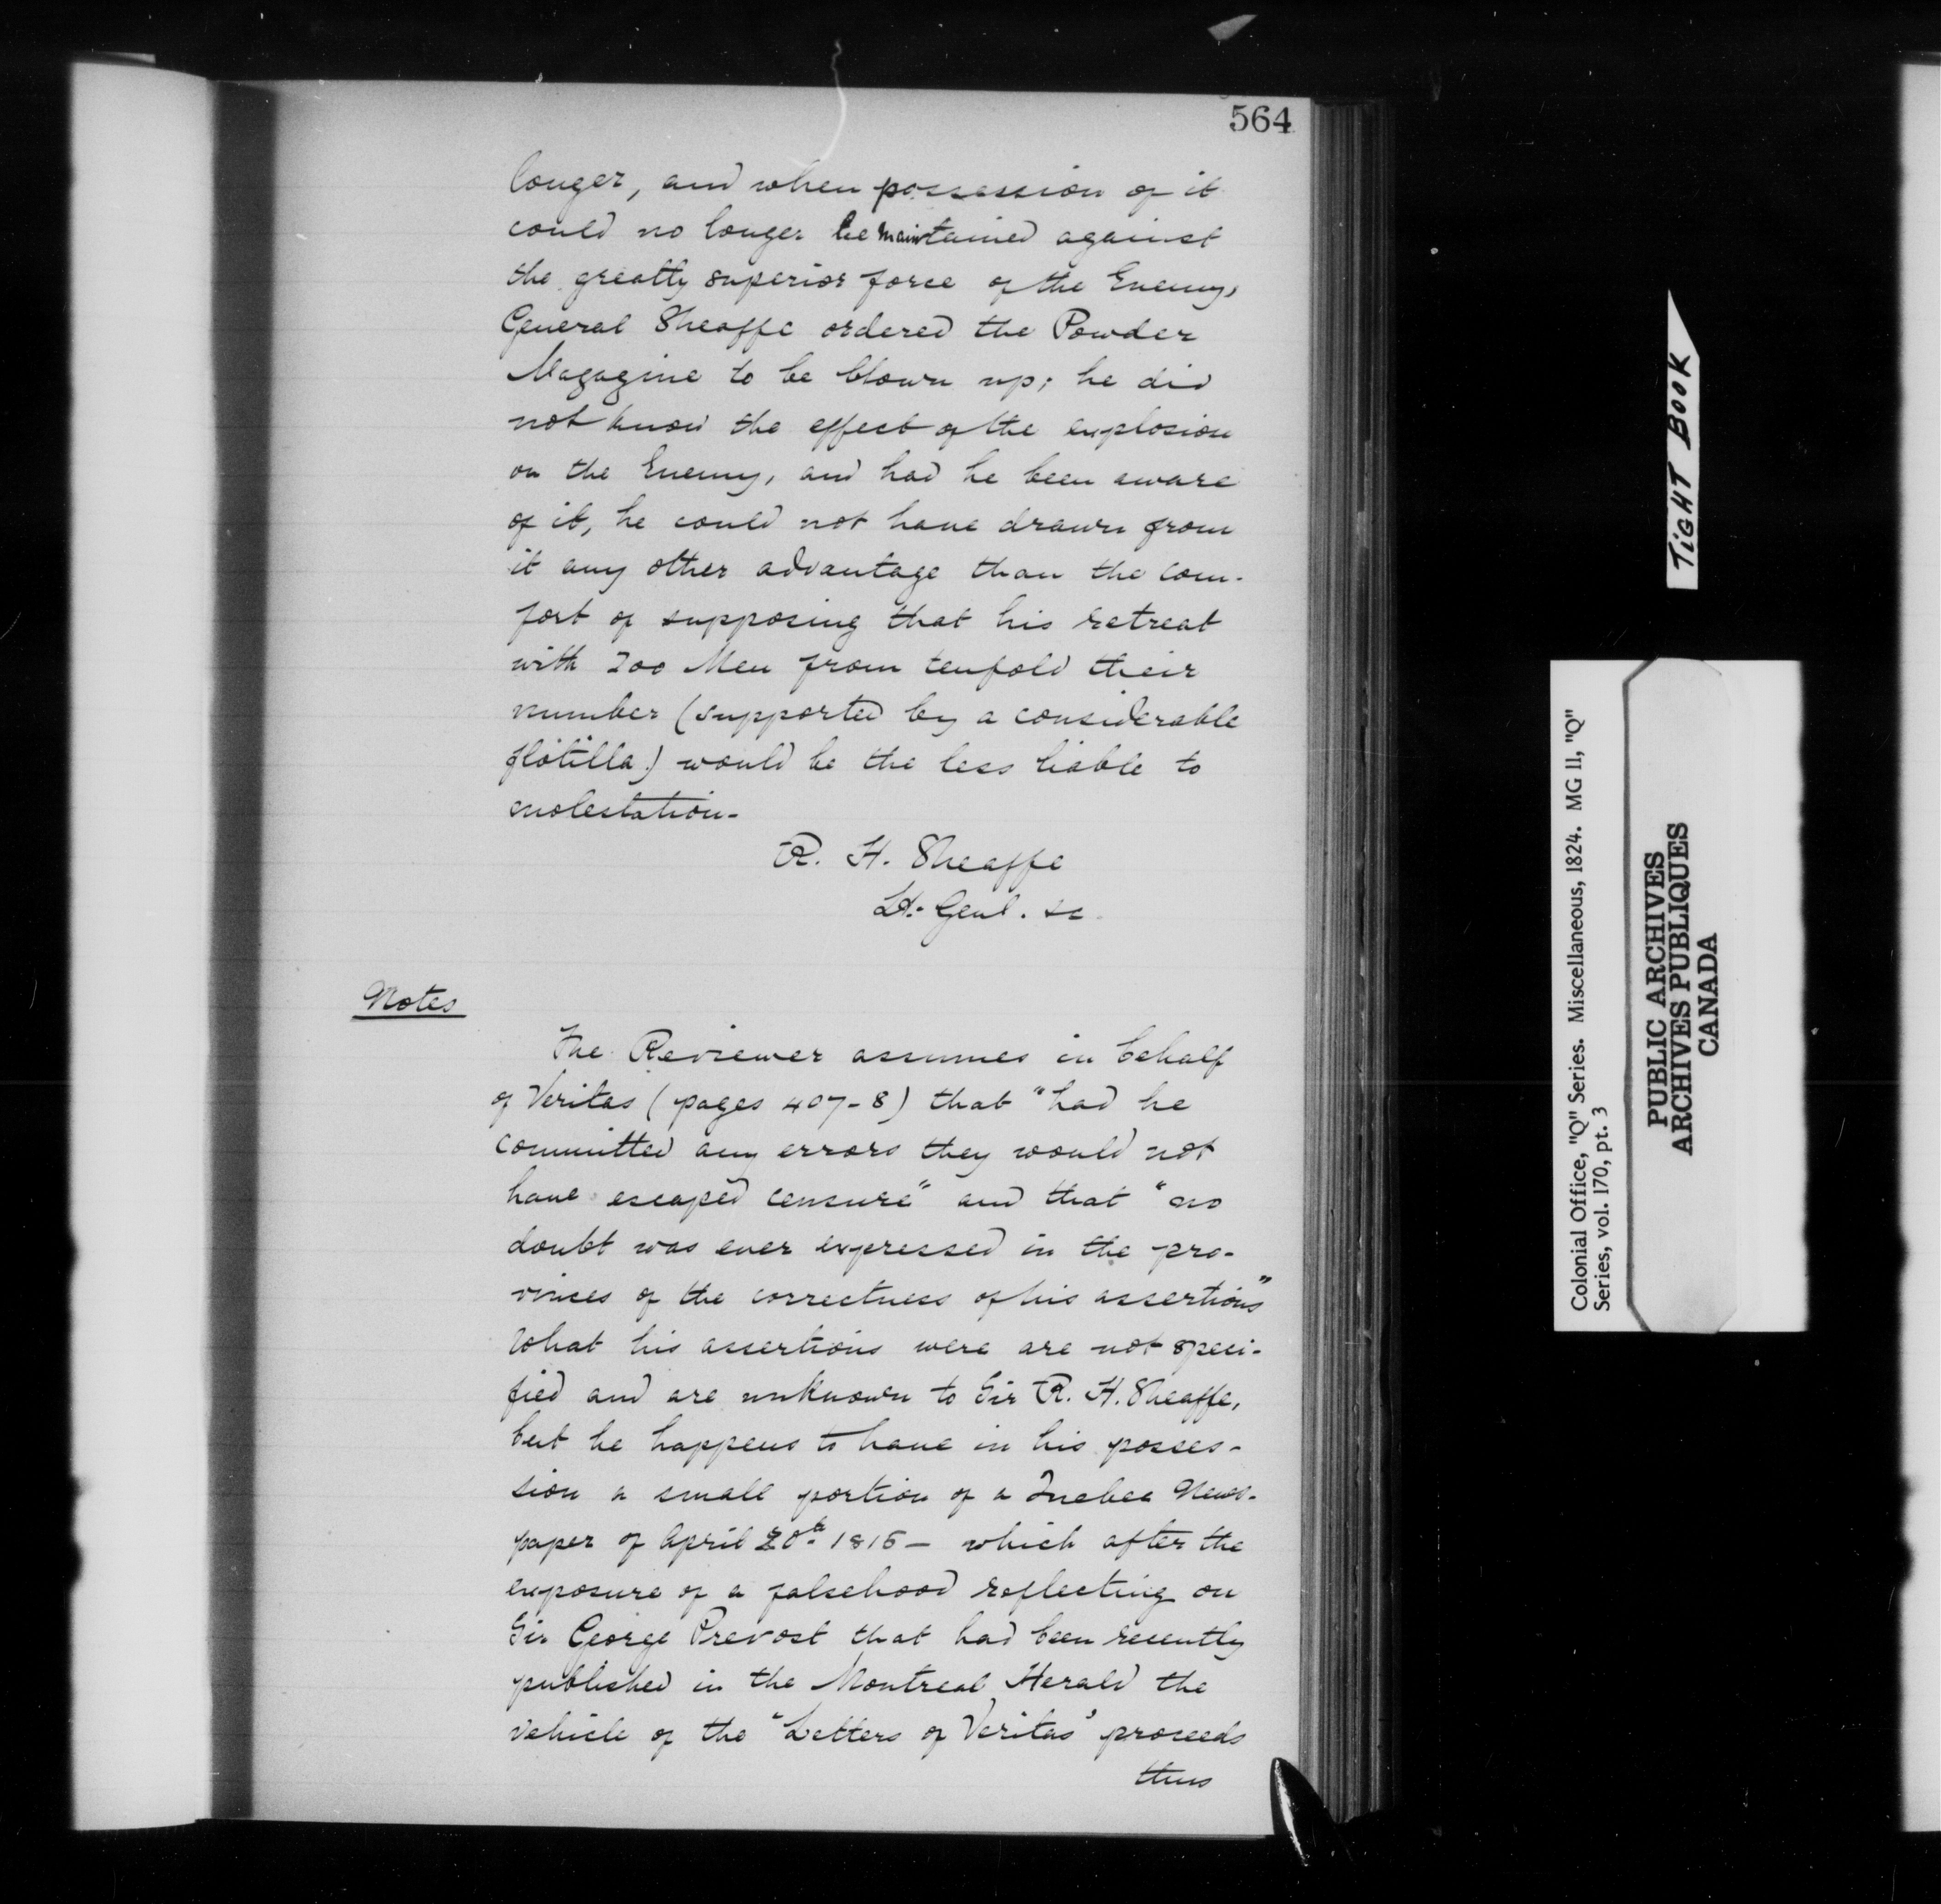 564
longer, and when possession of it
could no longer be maintained against
the greatly superior force of the Enemy,
General Sheaffe ordered the Powder
Magazine to be blown up; he did
not know the effect of the explosion
on the Enemy, and had he been aware
of it, he could not have drawn from
it any other advantage than the com-
fort of supposing that his retreat
with 200 Men from tenfold their
number (supported by a considerable
flotilla) would be the less liable to
molestation-
R. H. Sheaffe
Lt. Genl. &c.
Notes
The Reviewer assumes in behalf
of Veritas (pages 407-8) that "had he
committed any errors they would not
have escaped censure" and that "no
doubt was ever expressed in the pro-
vinces of the correctness of his assertions"
What his assertions were are not speci-
fied and are unknown to Sir R. H. Sheaffe,
but he happens to have in his posses-
sion a small portion of a Quebec News-
paper of April 20th 1815 - which after the
exposure of a falsehood reflecting on
Sir George Prevost that had been recently
published in the Montreal Herald the
vehicle of the "Letters of Veritas" proceeds
thus
TIGHT BOOK
Colonial Office, "Q" Series. Miscellaneous, 1824. MG 11, "Q"
Series, vol. 170, pt. 3
PUBLIC ARCHIVES
ARCHIVES PUBLIQUES
CANADA